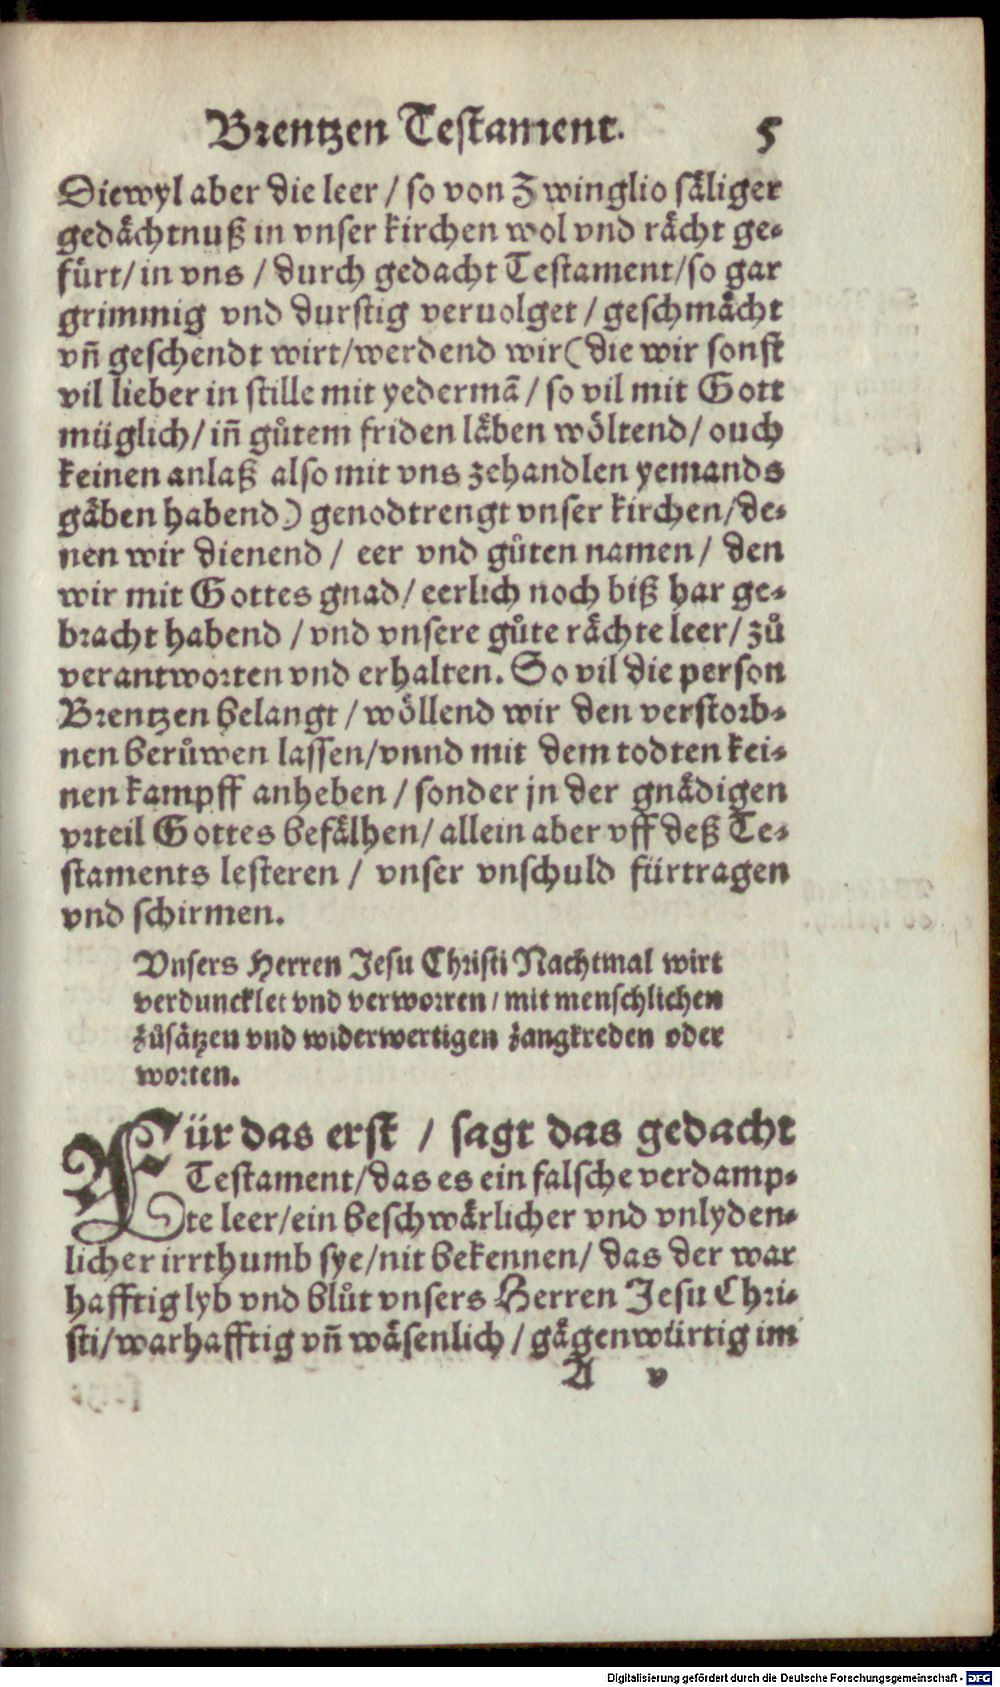 Brentzen Testament. 5
Diewyl aber die leer / so von Zwinglio säliger
gedächtnuß in vnser kirchen wol vnd rächt ge-
fürt / in vns / durch gedacht Testament / so gar
grimmig vnd durstig veruolget / geschmächt
vn̄ geschendt wirt / werdend wir (die wir sonst
vil lieber in stille mit yedermā / so vil mit Gott
müglich / in̄ gůtem friden läben wöltend / ouch
keinen anlaß also mit vns zehandlen yemands
gäben habend) genodtrengt vnser kirchen / de-
nen wir dienend / eer vnd gůten namen / den
wir mit Gottes gnad / eerlich noch biß har ge-
bracht habend / vnd vnsere gůte rächte leer / zů
verantworten vnd erhalten. So vil die person
Brentzen belangt / wöllend wir den verstorb-
nen berůwen lassen / vnnd mit dem todten kei-
nen kampff anheben / sonder jn der gnädigen
vrteil Gottes befälhen / allein aber vff deß Te-
staments lesteren / vnser vnschuld fürtragen
vnd schirmen.
Vnsers Herren Jesu Christi Nachtmal wirt
verduncklet vnd verworren / mit menschlichen
zůsätzen vnd widerwertigen zangkreden oder
worten.
Für das erst / sagt das gedacht
Testament / das es ein falsche verdamp-
te leer / ein beschwärlicher vnd vnlyden-
licher irrthumb sye / nit bekennen / das der war
hafftig lyb vnd blůt vnsers Herren Jesu Chri-
sti / warhafftig vn̄ wäsenlich / gägenwürtig im
A v
Digitalisierung gefördert durch die Deutsche Forschungsgemeinschaft - DFG